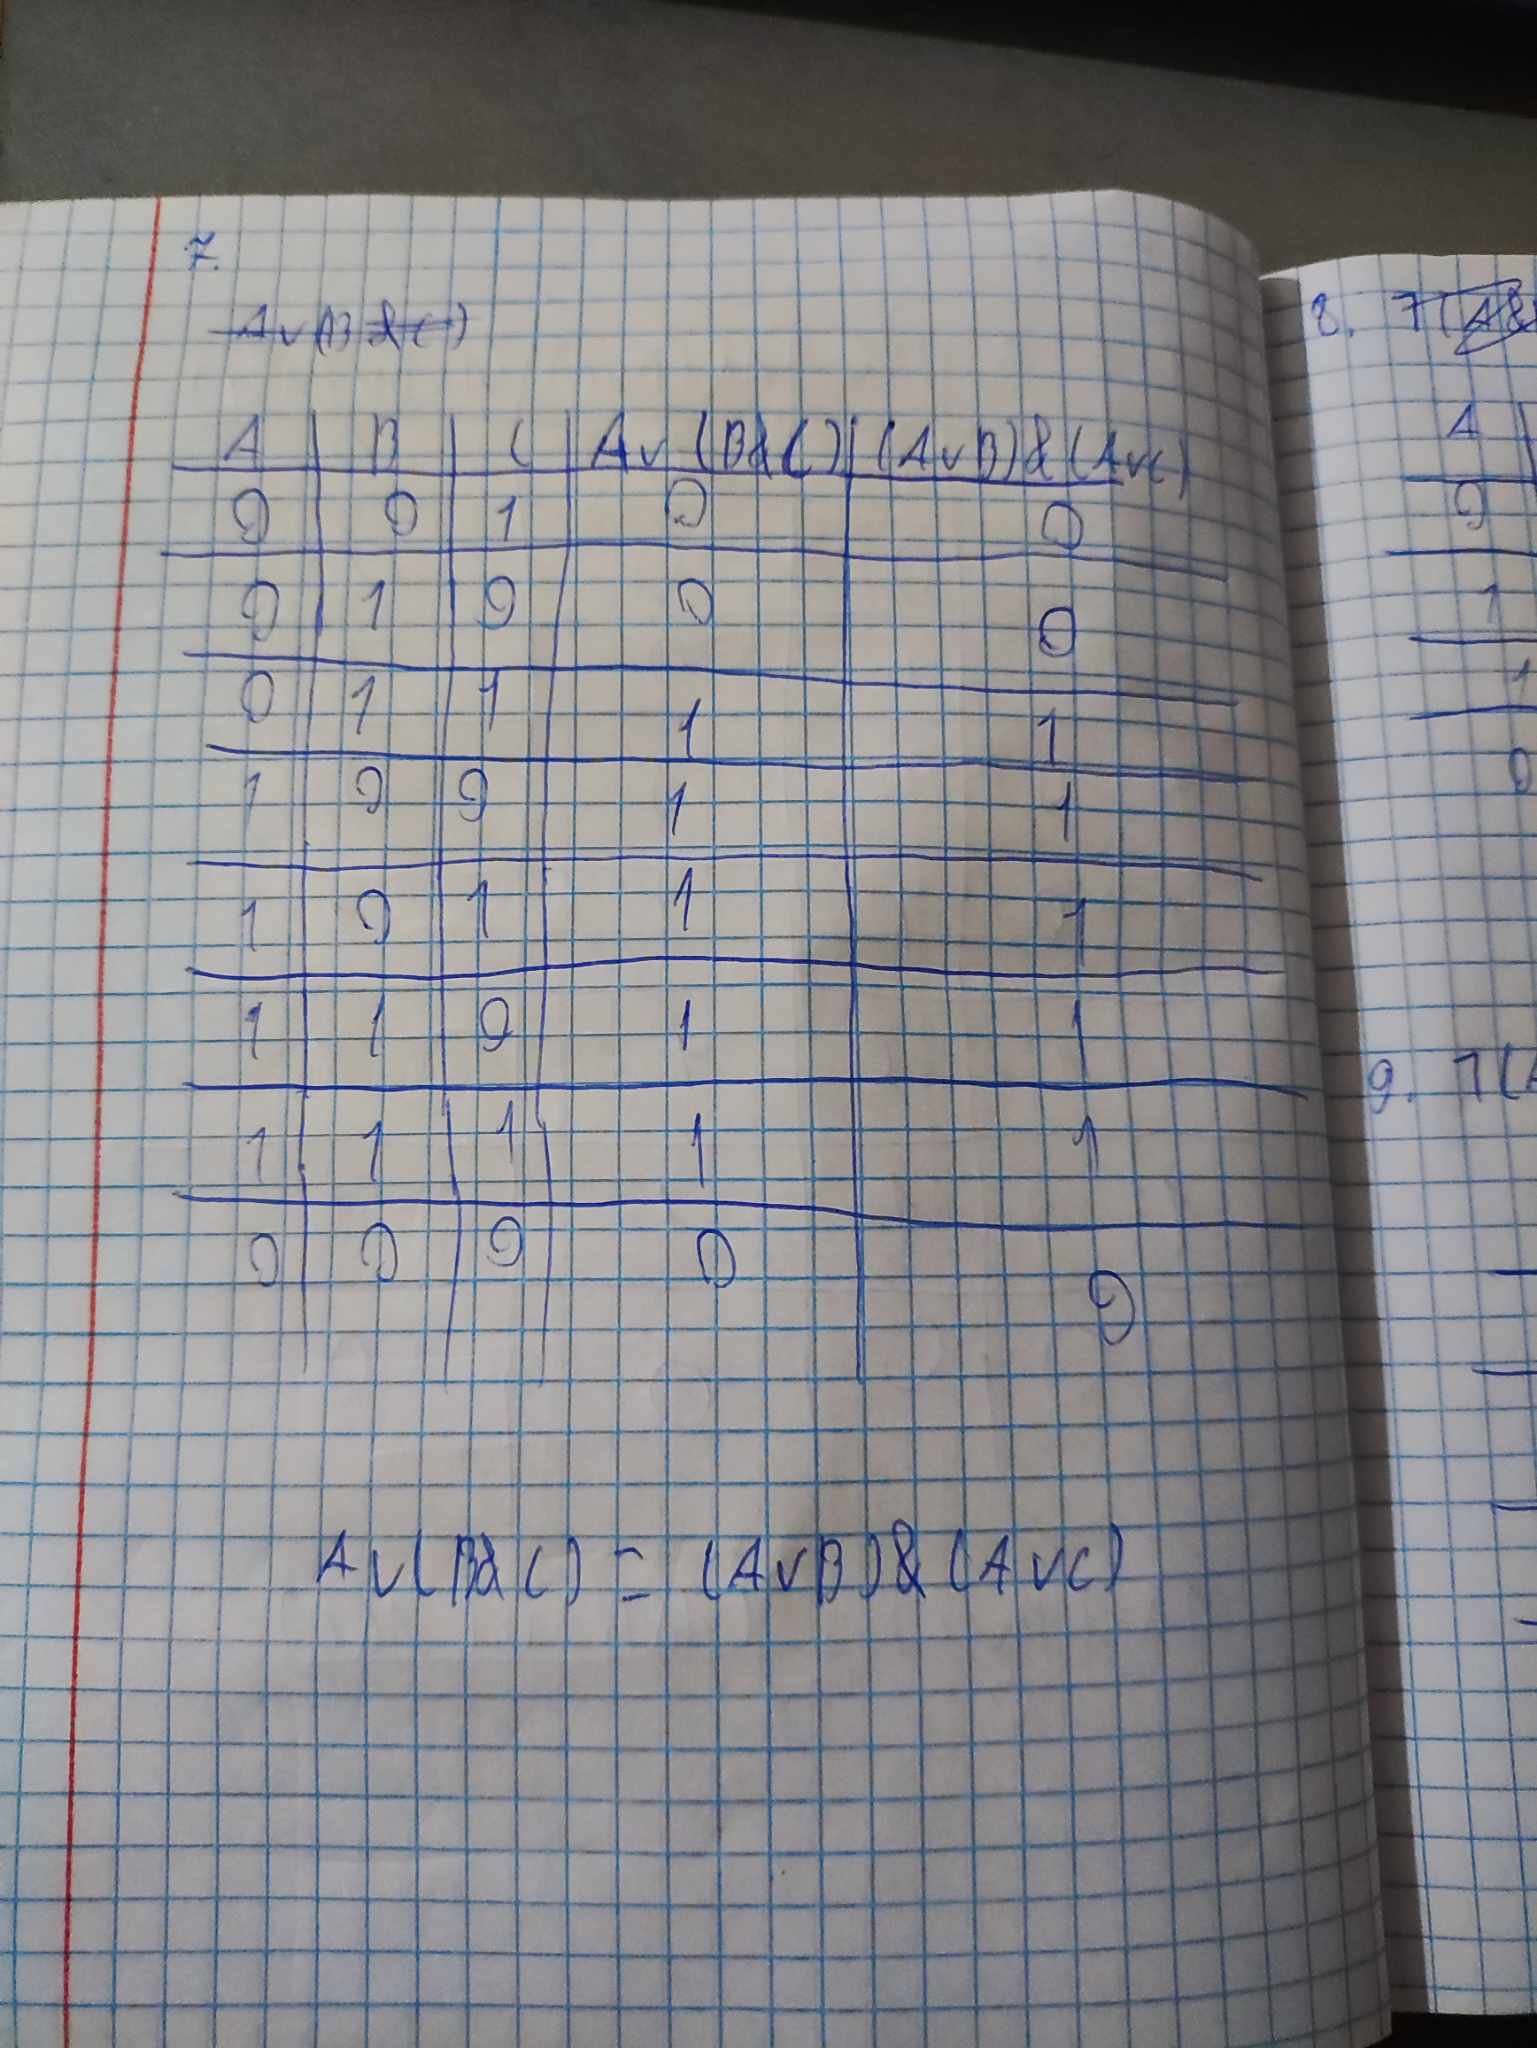 7.
A v (B & C)
A B C A v (B & C) (A v B) & (A v C)
0 0 1 0 0
0 1 0 0 0
0 1 1 1 1
1 0 0 1 1
1 0 1 1 1
1 1 0 1 1
1 1 1 1 1
0 0 0 0 0
A v (B & C) = (A v B) & (A v C)
8. ㄱ(A&
A
0
1
1
0
9. ㄱ(A